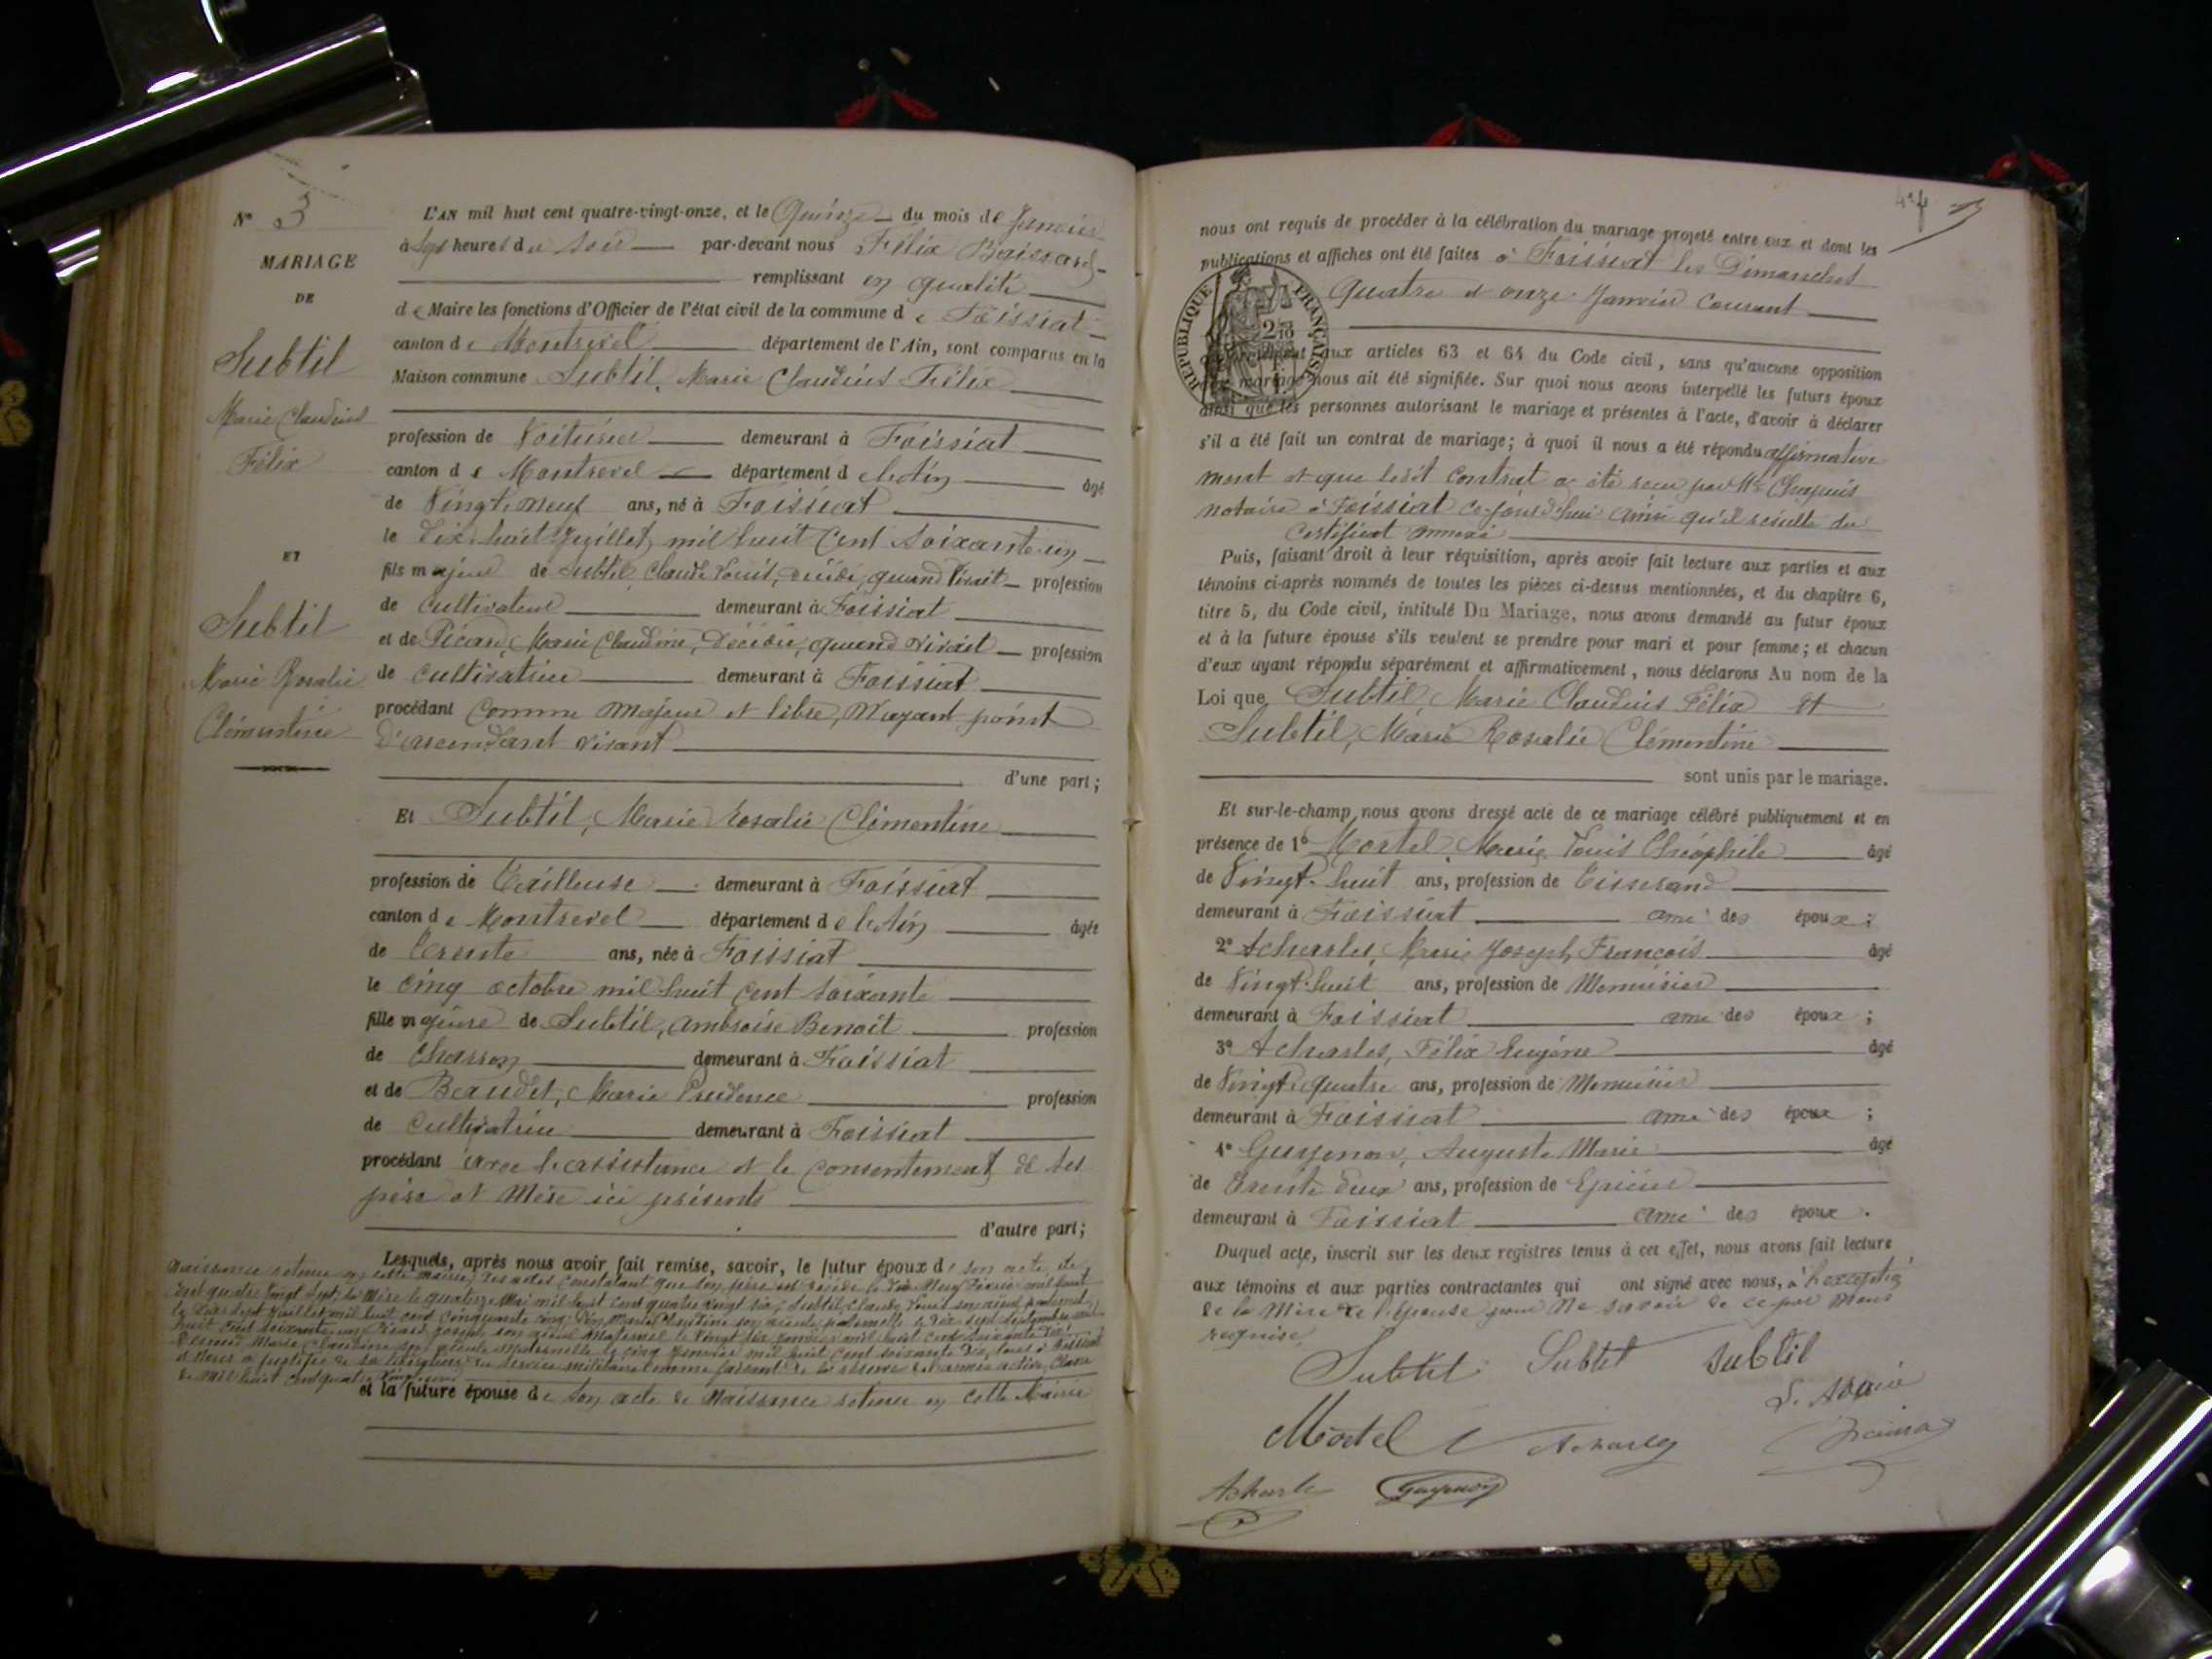 N° 3
MARIAGE
DE
Subtil
Marie Claudius
Félix
ET
Subtil
Marie Rosalie
Clémentine
L'AN mil huit cent quatre-vingt-onze, et le Quinze du mois de Janvier
à Sept heures du soir par-devant nous Félix Baissard
remplissant en qualité
de Maire les fonctions d'Officier de l'état civil de la commune de Foissiat
canton de Montrevel département de l'Ain, sont comparus en la
Maison commune Subtil, Marie Claudius Félix
profession de Voiturier demeurant à Foissiat
canton de Montrevel département de l'Ain âgé
de Vingt-neuf ans, né à Foissiat
le Dix huit Juillet mil huit cent soixante un
fils majeur de Subtil Claude Louis, décédé, quand vivait profession
de cultivateur demeurant à Foissiat
et de Picard, Marie Claudine, Décédée, quand vivait profession
de cultivatrice demeurant à Foissiat
procédant comme majeur et libre, n'ayant point
d'ascendant vivant
d'une part;
Et Subtil, Marie Rosalie Clémentine
profession de Tailleuse demeurant à Foissiat
canton de Montrevel département de l'Ain âgée
de Trente ans, née à Foissiat
le cinq octobre mil huit cent soixante
fille majeure de Subtil, Ambroise Benoit profession
de Charron demeurant à Foissiat
et de Beaudet, Marie Prudence profession
de cultivatrice demeurant à Foissiat
procédant avec l'assistance et le consentement de ses
père et mère ici présents
d'autre part;
Lesquels, après nous avoir fait remise, savoir, le futur époux de son acte de
naissance retenu en cette mairie, des actes constatant que son père est décédé le Dix Neuf Février mil huit
cent quatre vingt sept, sa Mère le quatorze Mai mil huit cent quatre vingt six, Subtil, Claude Louis son aïeul paternel
le juillet mil huit cent cinquante cinq, Marie Claudine son aïeule paternelle le dix sept septembre mil
huit cent soixante un, Picard Joseph son aïeul maternel le vingt six janvier mil huit cent soixante dix,
Marie Claudine son aïeule maternelle le cinq janvier mil huit cent soixante dix, tous à Foissiat
et Nous a justifié de sa libération du service militaire comme faisant de la réserve de l'armée active, Classe
de mil huit cent quatre vingt un
et la future épouse de son acte de Naissance retenu en cette Mairie
nous ont requis de procéder à la célébration du mariage projeté entre eux et dont les
publications et affiches ont été faites à Foissiat les Dimanches
Quatre et onze Janvier courant
RÉPUBLIQUE FRANÇAISE
conformément aux articles 63 et 64 du Code civil, sans qu'aucune opposition
mariage nous ait été signifiée. Sur quoi nous avons interpellé les futurs époux
ainsi que les personnes autorisant le mariage et présentes à l'acte, d'avoir à déclarer
s'il a été fait un contrat de mariage; à quoi il nous a été répondu affirmative
ment et que ledit contrat a été reçu par Me Chapuis
notaire à Foissiat ce jourd'hui ainsi qu'il résulte du
certificat annexé
Puis, faisant droit à leur réquisition, après avoir fait lecture aux parties et aux
témoins ci-après nommés de toutes les pièces ci-dessus mentionnées, et du chapitre 6,
titre 5, du Code civil, intitulé Du Mariage, nous avons demandé au futur époux
et à la future épouse s'ils veulent se prendre pour mari et pour femme; et chacun
d'eux ayant répondu séparément et affirmativement, nous déclarons Au nom de la
Loi que Subtil, Marie Claudius Félix et
Subtil, Marie Rosalie Clémentine
sont unis par le mariage.
Et sur-le-champ nous avons dressé acte de ce mariage célébré publiquement et en
présence de 1° Mortel Marie Louis Théophile âgé
de Vingt-huit ans, profession de Tisserand
demeurant à Foissiat ami des époux;
2° Acharles, Marie Joseph François âgé
de Vingt-huit ans, profession de Menuisier
demeurant à Foissiat ami des époux;
3° Acharles, Félix Eugène âgé
de Vingt-quatre ans, profession de Menuisier
demeurant à Foissiat ami des époux;
4° Guyenon, Auguste Marie âgé
de Trente deux ans, profession de Epicier
demeurant à Foissiat ami des époux.
Duquel acte, inscrit sur les deux registres tenus à cet effet, nous avons fait lecture
aux témoins et aux parties contractantes qui ont signé avec nous, à l'exception
de la Mère de l'épouse pour ne savoir de ce par nous
requise
Subtil Subtil Subtil
Mortel Acharles
Acharle Guyenon